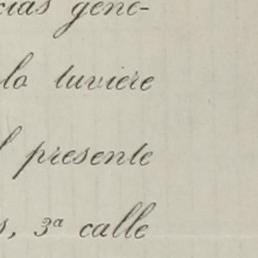 cias gene-
lo tuviere
l presente
s, 3ª calle